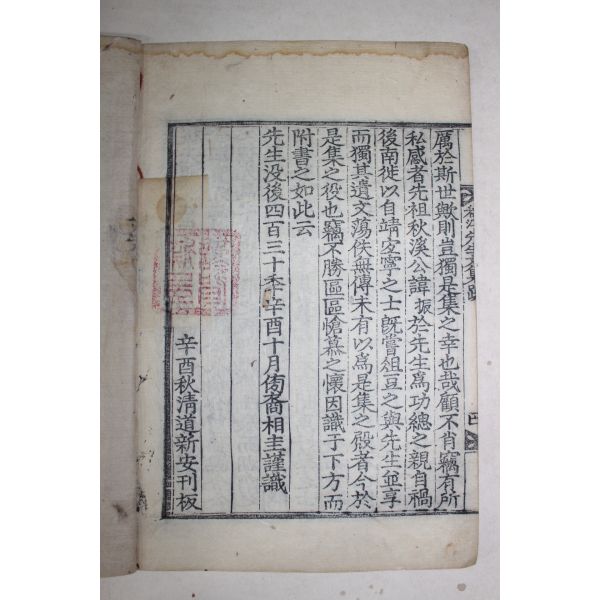 厲於斯世歟則豈獨是集之幸也哉顧不肖竊有所
私感者先祖秋溪公諱振於先生爲功緦之親自禍
後南徙以自靖安寧之士旣嘗俎豆之與先生並享
而獨其遺文蕩佚無傳未有以爲是集之殿者今於
是集之役也竊不勝區區愴慕之懷因識于下方而
附書之如此云
先生没後四百三十季辛酉十月傍裔相圭謹識
辛酉秋淸道新安刊板
先生文集跋
四